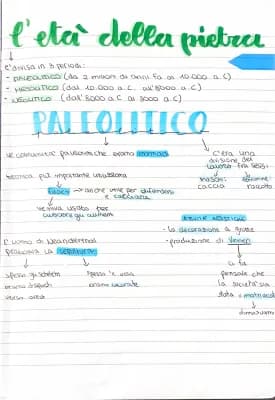 l'età della pietra
è divisa in 3 periodi:
- PALEOLITICO (da 2 milioni di anni fa ai 10.000 a.C)
- MESOLITICO (dal 10.000 a.C. all'8000 a.C)
- NEOLITICO (dall'8000 a.C ai 3000 a.C)
PALEOLITICO
le comunità paleolitiche erano nomadi
c'era una
divisione del
lavoro fra sessi
tecnica più importante
maschi: caccia
raccolta
fuoco → anche utile per difendersi
e cacciare
veniva usato per
cuocere gli alimenti
- la decorazione a grotte
- produzione di Veneri
L'uomo di Neanderthal
praticava la sepoltura
spesso gli scheletri
spesso le ossa
erano colorate
ci fa
pensare che
la società sia
stata matriarcale